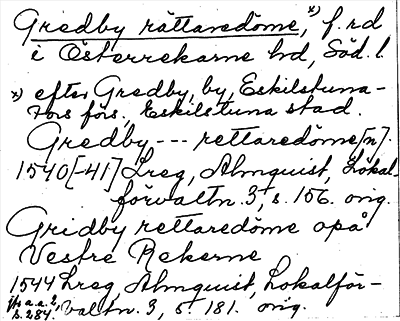 Gredby rättaredöme,*) f.r.d
i Österrekarne hd, Söd. l.
*) efter Gredby, by, Eskilstuna-
Fors förs., Eskilstuna stad.
Gredby --- rettaredöme[n].
1540[-41] Lreg, Almquist, Lokal-
förvaltn. 3, s. 156. orig.
Gridby rettaredöme opå
Vestre Rekerne
1544 Lreg, Almquist, Lokalför-
valtn. 3, s. 181. orig.
Jfr a.a. 2,
s. 284.